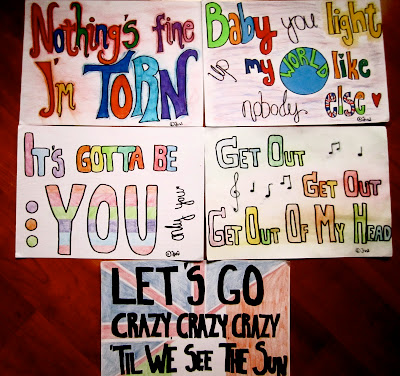 Nothing's fine
I'm TORN
Baby you light
up my WORLD like
nobody else
IT'S GOTTA BE
YOU
only you
GET OUT
GET OUT
GET OUT OF MY HEAD
LET'S GO
CRAZY CRAZY CRAZY
'TIL WE SEE THE SUN